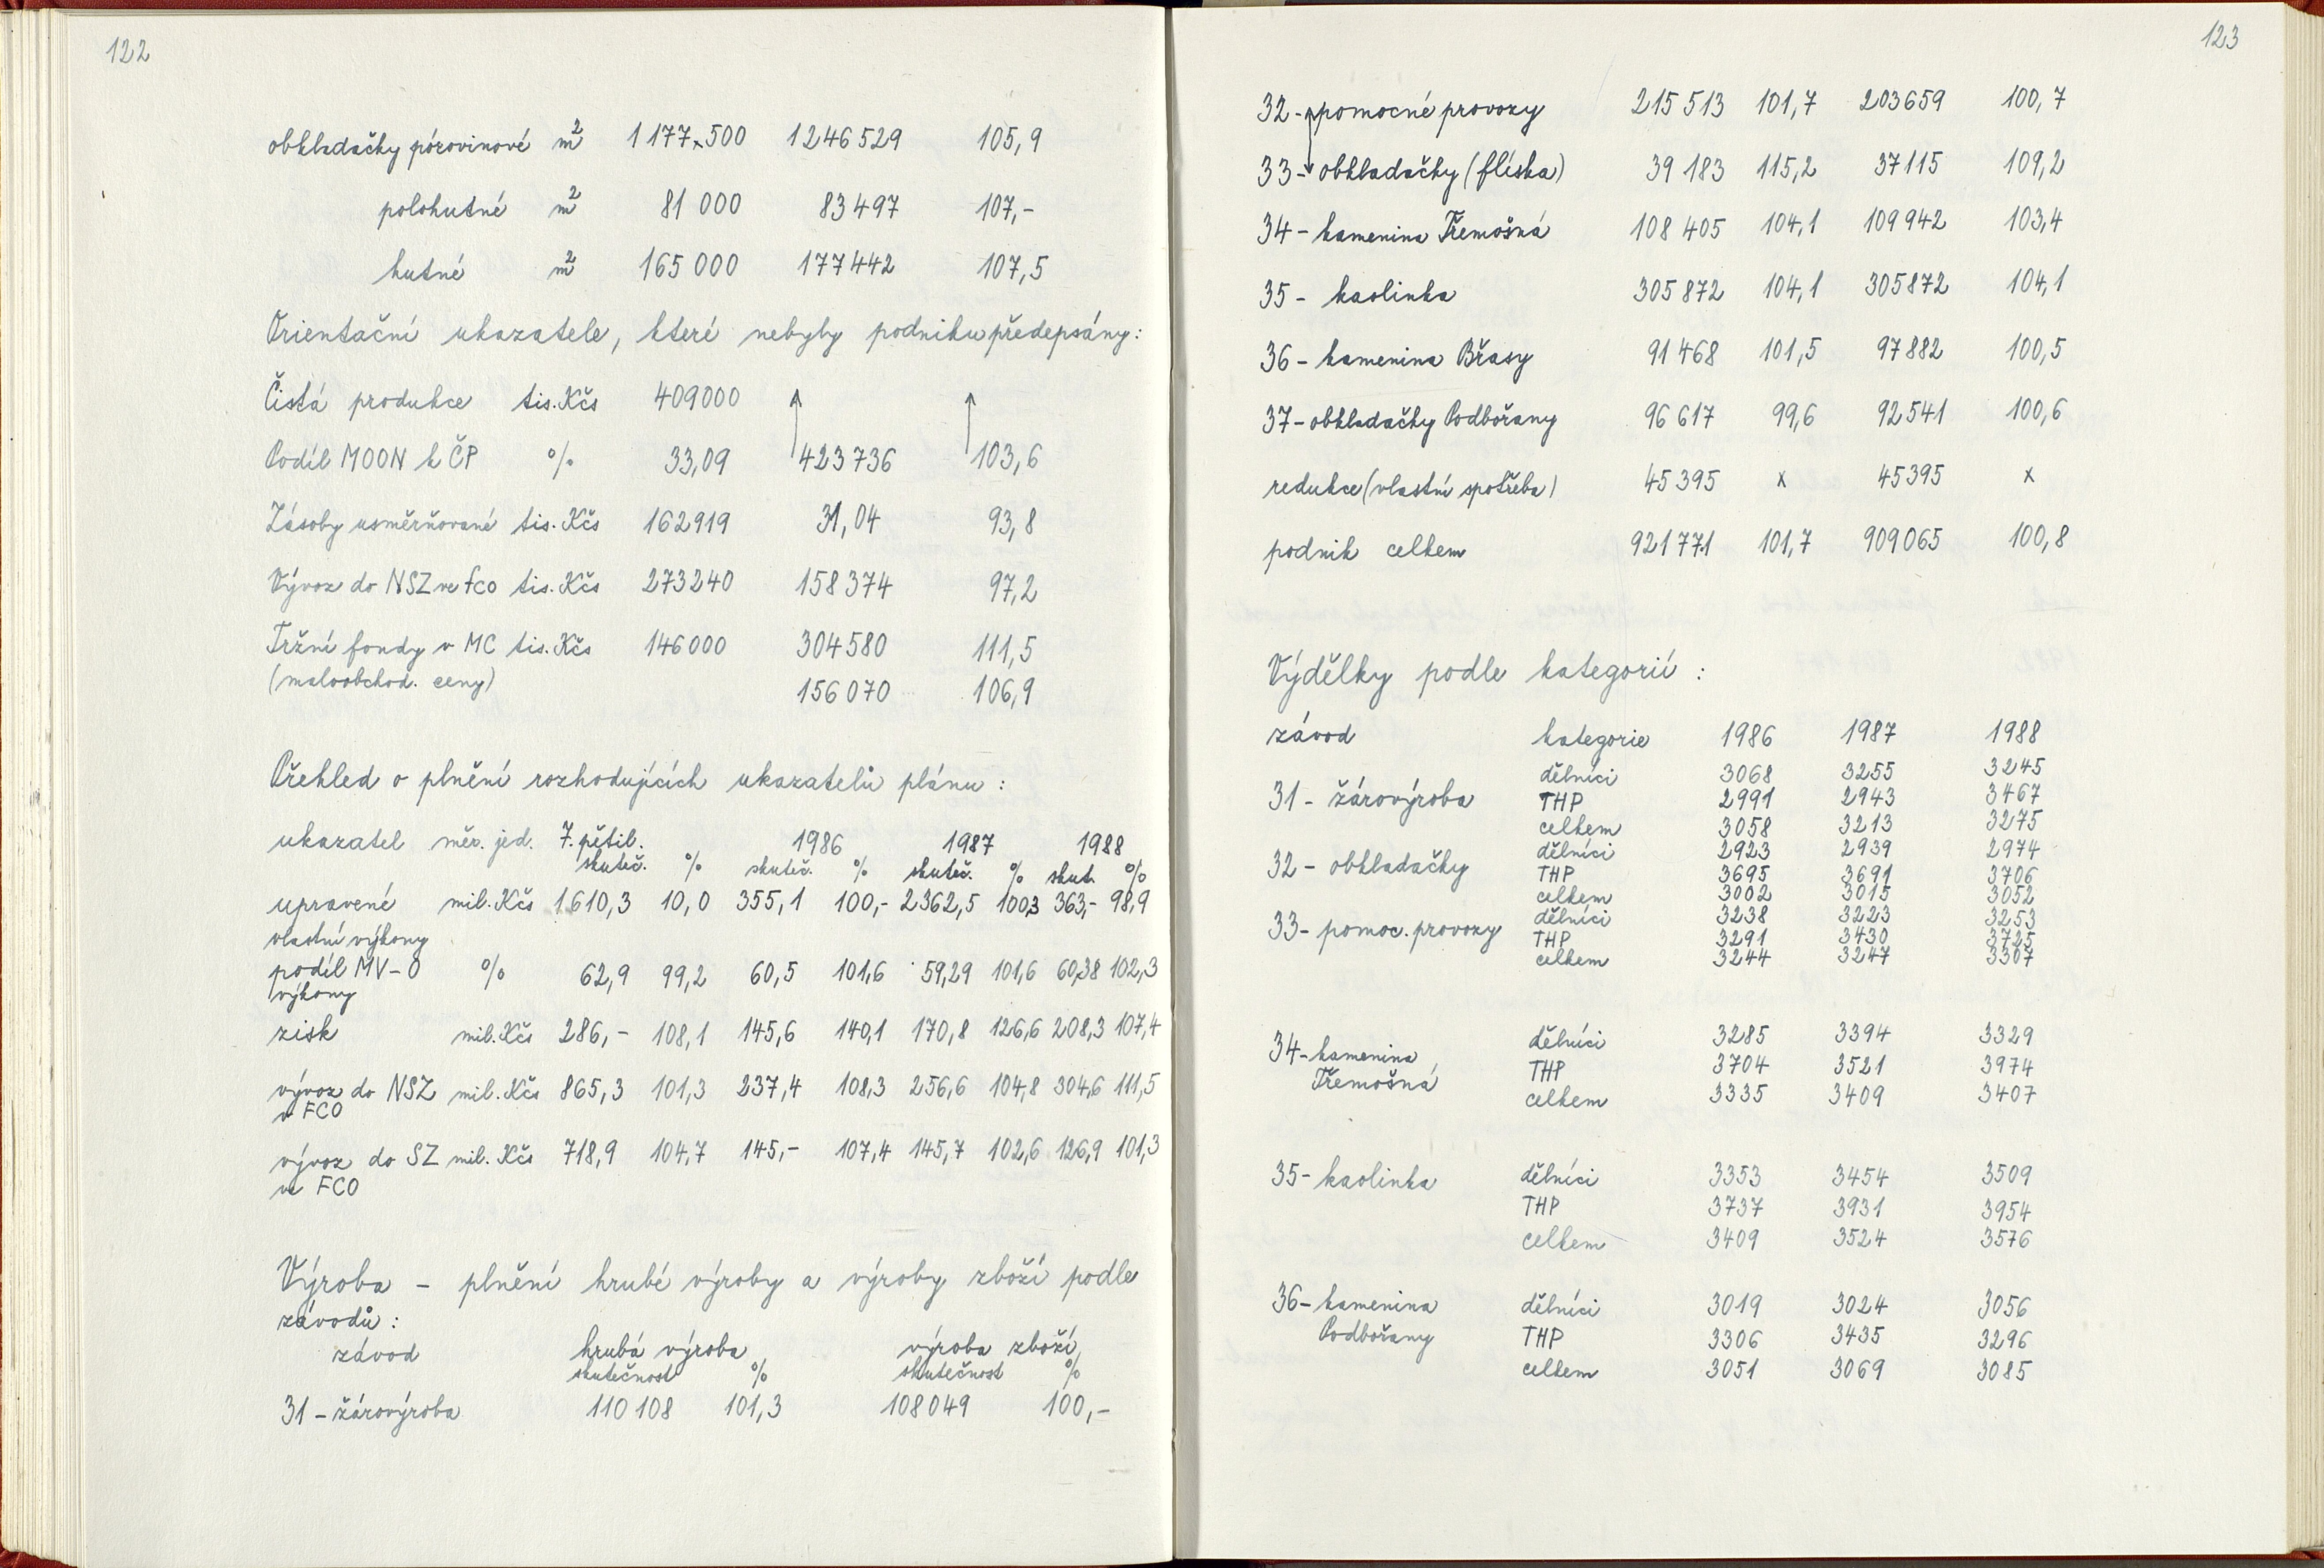 122
obkladačky pórovinové m2 1 177 500 1 246 529 105,9
polohutné m2 81 000 83 497 107,-
hutné m2 165 000 177 442 107,5
Orientační ukazatele, které nebyly podniku předepsány:
Čistá produkce tis. Kčs 409000 ↑ ↑
Podíl MOON k ČP % 33,09 423 736 103,6
Zásoby usměrňované tis. Kčs 162919 31,04 93,8
Vývoz do NSZ ve fco tis. Kčs 273240 158 374 97,2
Tržní fondy v MC tis. Kčs 146000 304580 111,5
(maloobchod. ceny) 156 070 106,9
Přehled o plnění rozhodujících ukazatelů plánu :
ukazatel měr. jed. 7. pětil. 1986 1987 1988
skuteč. % skuteč. % skuteč. % skut. %
upravené mil. Kčs 1610,3 10,0 355,1 100,- 2362,5 100,3 363,- 98,9
vlastní výkony
podíl MV-O % 62,9 99,2 60,5 101,6 59,29 101,6 60,38 102,3
výkony
zisk mil. Kčs 286,- 108,1 145,6 140,1 170,8 126,6 208,3 107,4
vývoz do NSZ mil. Kčs 865,3 101,3 237,4 108,3 256,6 104,8 304,6 111,5
v FCO
vývoz do SZ mil. Kčs 718,9 104,7 145,- 107,4 145,7 102,6 126,9 101,3
ve FCO
Výroba - plnění hrubé výroby a výroby zboží podle
závodů :
závod hrubá výroba výroba zboží
skutečnost % skutečnost %
31 - žárovýroba 110 108 101,3 108 049 100,-
123
32 - pomocné provozy 215 513 101,7 203659 100,7
33 - obkladačky (flíska) 39 183 115,2 37115 109,2
34 - kamenina Třemošná 108 405 104,1 109942 103,4
35 - kaolinka 305 872 104,1 305872 104,1
36 - kamenina Břasy 91 468 101,5 97882 100,5
37 - obkladačky Podbořany 96 617 99,6 92541 100,6
redukce (vlastní spotřeba) 45 395 x 45395 x
podnik celkem 921 771 101,7 909065 100,8
Výdělky podle kategorií :
závod kategorie 1986 1987 1988
dělníci 3068 3255 3245
31 - žárovýroba THP 2991 2943 3467
celkem 3058 3213 3275
dělníci 2923 2939 2974
32 - obkladačky THP 3695 3691 3706
celkem 3002 3015 3052
dělníci 3238 3223 3253
33 - pomoc. provozy THP 3291 3430 3725
celkem 3244 3247 3307
dělníci 3285 3394 3329
34 - kamenina THP 3704 3521 3974
Třemošná celkem 3335 3409 3407
35 - kaolinka dělníci 3353 3454 3509
THP 3737 3931 3954
celkem 3409 3524 3576
36 - kamenina dělníci 3019 3024 3056
Podbořany THP 3306 3435 3296
celkem 3051 3069 3085